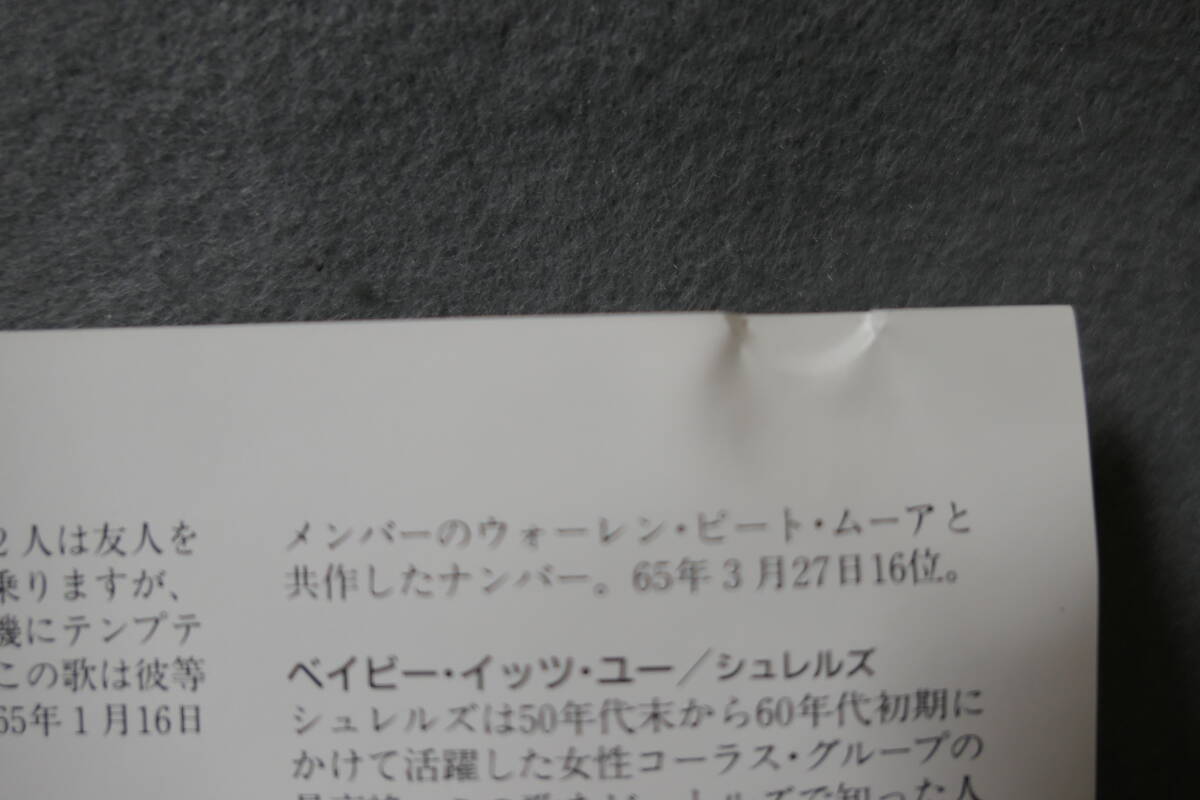 2人は友人を
乗りますが、
機にテンプテ
この歌は彼等
65年1月16日
メンバーのウォーレン・ピート・ムーアと
共作したナンバー。65年3月27日16位。
ベイビー・イッツ・ユー/シュレルズ
シュレルズは50年代末から60年代初期に
かけて活躍した女性コーラス・グループの
で知った人